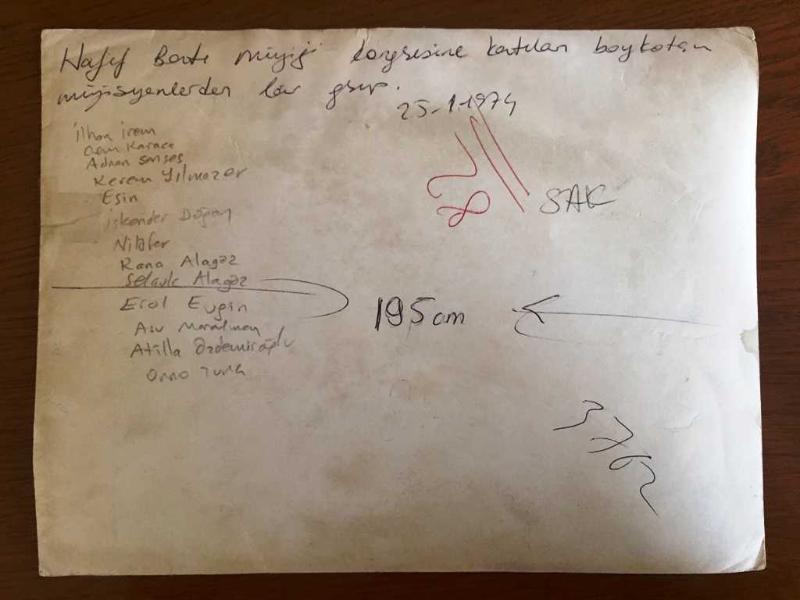 Hafif Batı müziği longsisine katılan boykotan
müzisyenlerden bir grup.
25-1-1974
ilhan irem
Cem Karaca
Adnan Senses
Kerem Yılmazer
Esin
iskender Doğan
Nilüfer
Rana Alagöz
Selçuk Alagöz
Erol Evgin
Asu Maralman
Atilla Özdemiroğlu
Onno Tunç
8
SAK
195cm
3762